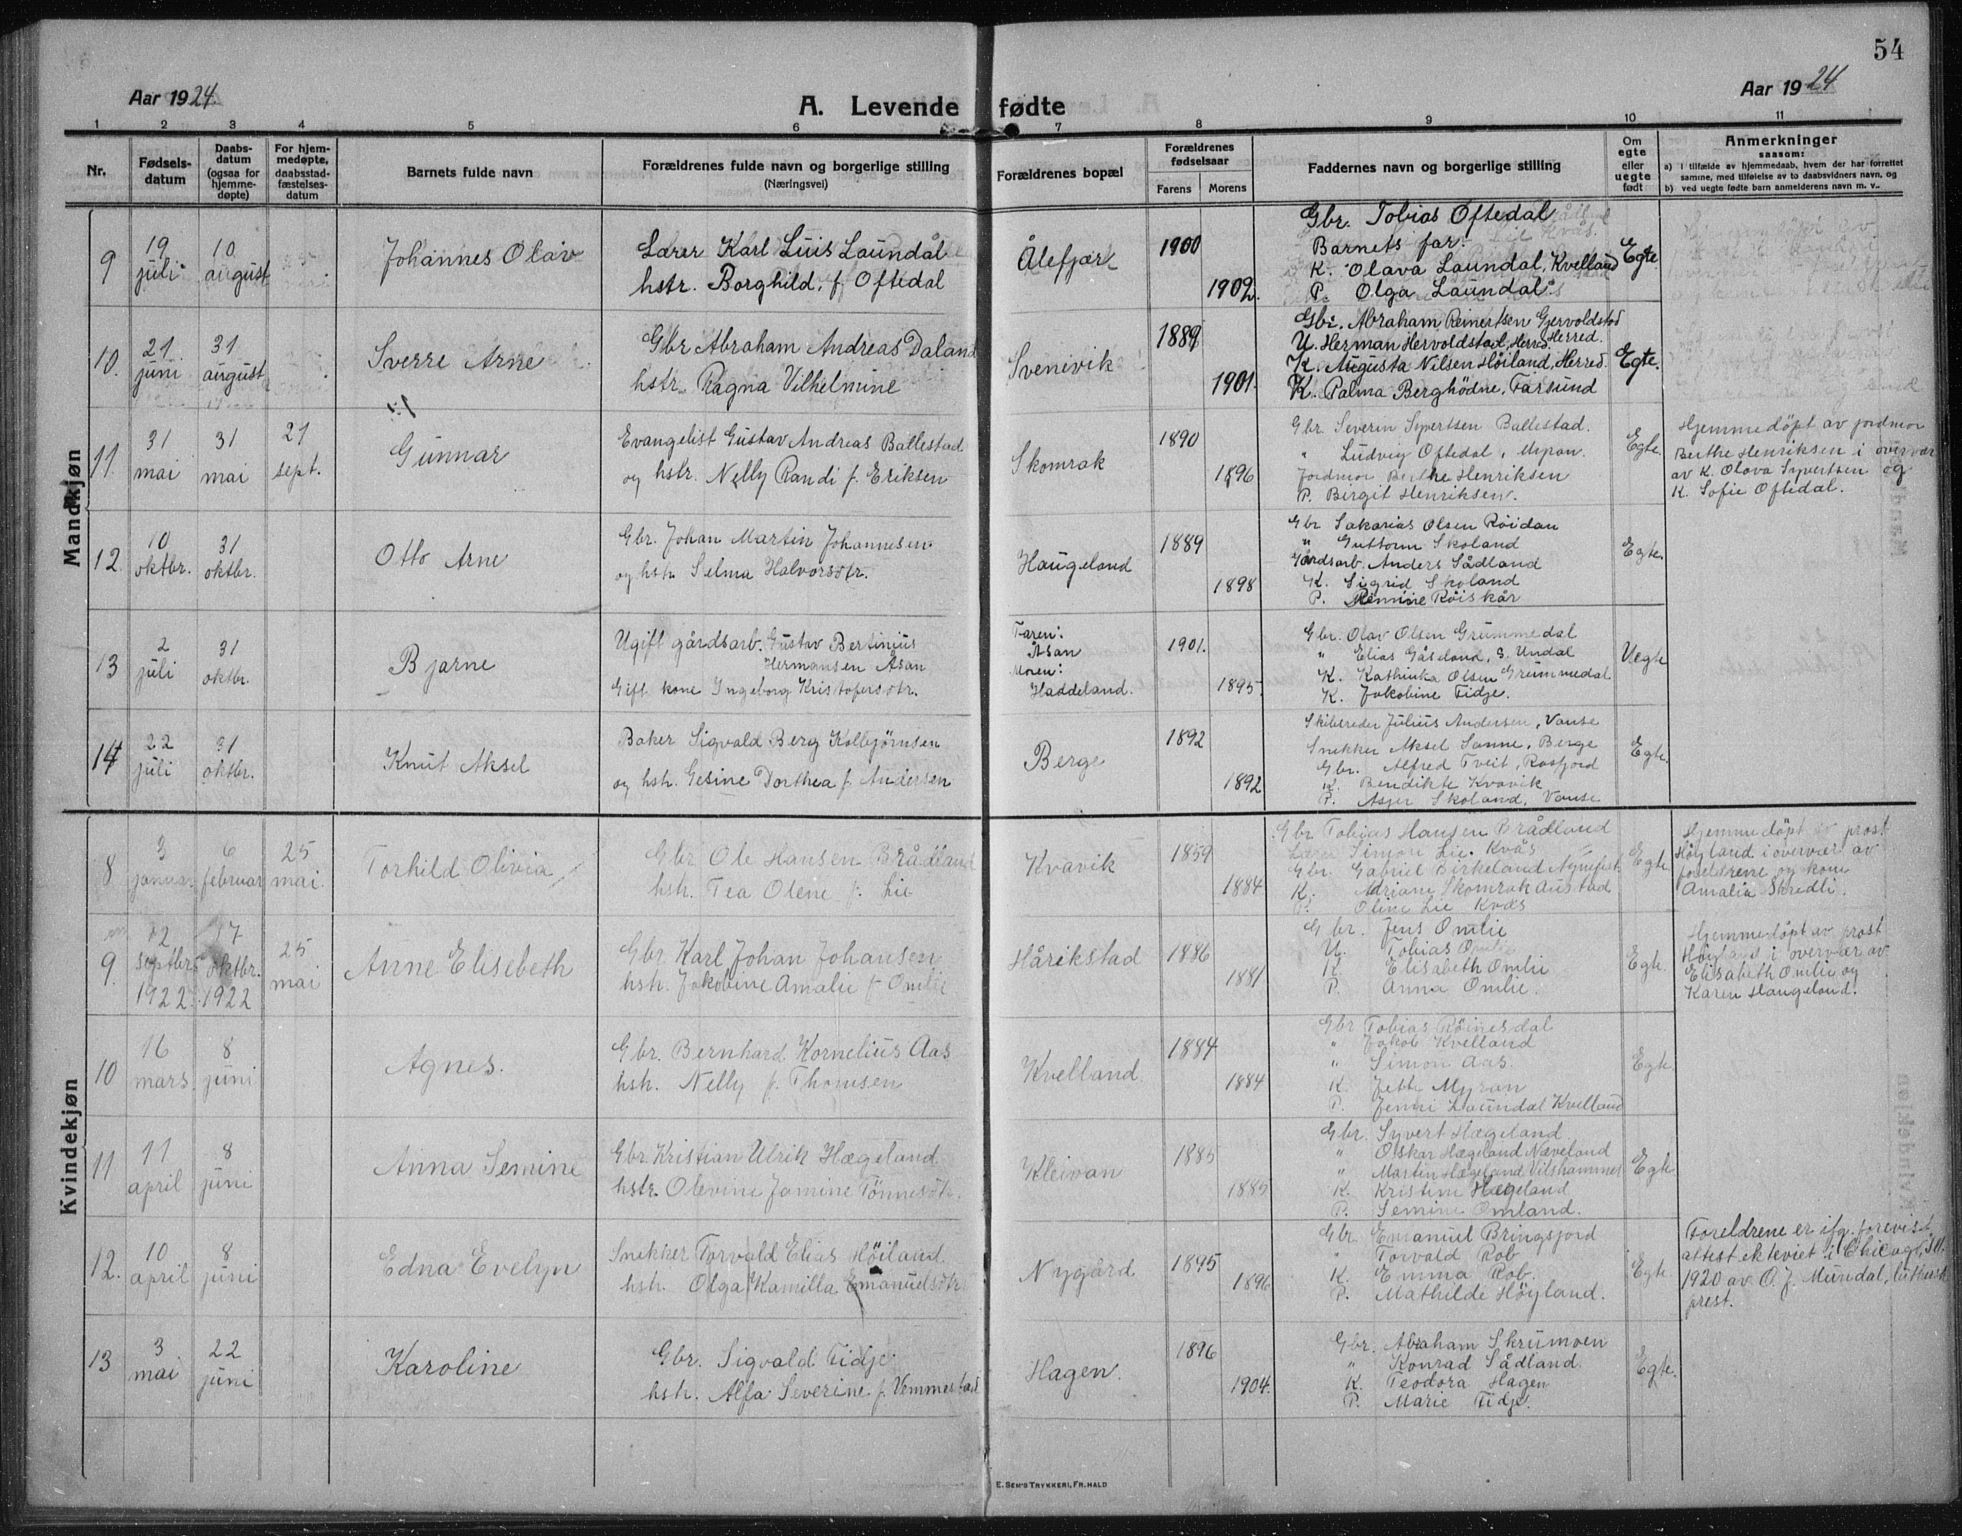 54
Aar 1924.
A. Levende fødte
Aar 1924
1 2 3 4 5 6 7 8 9 10 11
Nr.
Fødsels-
datum
Daabs-
datum
(ogsaa for
hjemme-
døpte)
For hjem-
medøpte,
daabsstad-
fæstelses-
datum
Barnets fulde navn
Forældrenes fulde navn og borgerlige stilling
(Næringsvei)
Forældrenes bopæl
Forældrenes
fødselsaar
Farens Morens
Faddernes navn og borgerlige stilling
Om
egte
eller
uegte
født
Anmerkninger
saasom:
a) i tilfælde av hjemmedaab, hvem der har forrettet
samme, med tilføielse av to daabsvidners navn, og
b) ved uegte fødte barn anmelderens navn m. v.
Mandkjøn
9
19
juli
10
august
Johannes Olav
Lærer Karl Luis Laundål
hstr. Borghild, f. Oftedal
Ålefjær
1900
1902.
Gbr. Tobias Oftedal
Barnets far.
K. Olava Laundal, Kvelland
P. Olga Laundal.
Egte.
10.
21
juni
31
august
Sverre Arne
Gbr Abraham Andreas Daland
hstr. Ragna Vilhelmine
Svenevik
1889
1901.
Gbr. Abraham Reinertsen Gjervoldstad
Herred.
U. Herman Hervoldstad, Herred
K. Augusta Nilsen Høiland, Herred
K. Palma Berghödne, Farsund
Egte.
11.
31
mai
31
mai
21
sept.
Gunnar
Evangelist Gustav Andreas Ballestad
og hstr. Nelly Randi f. Eriksen
Skomrak
1890
1896
Gbr Severin Syvertsen Ballestad.
" Ludvig Oftedal, Myran.
Jordmor Berthe Henriksen
P. Birgit Henriksen.
Egte.
Hjemmedöpt av jordmor
Berthe Henriksen i overvær
av K. Olava Syvertsen og
K. Sofie Oftedal.
12
10
oktbr.
31
oktbr.
Otto Arne
Gbr. Johan Martin Johannesen
og hstr. Selma Halvorsdtr.
Haugeland
1889
1898
Gbr Sakarias Olsen Röidan
" Guttorm Skoland
Gårdsarb. Anders Sådland
K. Sigrid Skoland
P. Remine Röiskår
Egte.
13
2
juli
31
oktbr.
Bjarne
Ugift gårdsarb. Gustav Bertinius
Hermansen Åsan
Gift kone Ingeborg Kristofersdtr.
Faren:
Åsan
Moren:
Haddeland.
1901.
1895.
Gbr. Olav Olsen Grummedal
" Elias Gåseland, S. Undal
K. Kathinka Olsen Grummedal
K. Jakobine Tidje.
Uegte
14
22
juli
31
oktbr.
Knut Aksel
Baker Sigvald Berg Kolbjørnsen
og hstr. Gesine Dorthea f. Andersen
Berge
1892
1892
Skibsreder Julius Andersen, Vanse
Snekker Aksel Sanne, Berge
Gbr. Alfred Tveit, Rosfjord
K. Bendikte Kvavik
P. Asjer Skoland, Vanse
Egte.
Kvindekjøn
8
3
januar.
6
februar
25
mai.
Torhild Olivia
Gbr Ole Hansen Brådland
hstr. Tea Olene f. Lie
Kvavik
1859
1884
Gbr Tobias Hansen Brådland
Lærer Simon Lie. Kvås
Gbr. Gabriel Birkeland
K. Adriane Skomrak Austad
P. Oline Lie Kvås
Egte
Hjemmedöpt av prost
Höyland i overvær av
foreldrene og kone
Amalia Skredli.
9.
12
septbr
1922.
17
oktbr.
1922
25
mai
Anne Elisebeth
Gbr. Karl Johan Johansen
hstr. Jakobine Amalie f. Omlie
Hårikstad
1886
1881
Gbr. Jens Omlie
U. Tobias Omlie
K. Elisabeth Omlie
P. Anna Omlie.
Egte.
Hjemmedöpt av prost
Höyland i overvær av
Elisabeth Omlie og
Karen Haugeland.
10
16
mars.
8
juni
Agnes.
Gbr. Bernhard Kornelius Aas
hstr. Nelly f. Thomsen
Kvelland
1884
1884
Gbr Tobias Röinesdal
" Jakob Kvelland
" Simon Aas.
K. Jette Myran
P. Jenni Laundal Kvelland
Egte
11
11
april
8
juni
Anna Semine
Gbr. Kristian Ulrik Hægeland
hstr. Olevine Jamine Tönnesdtr.
Kleivan
1885
1885
Gbr. Syvert Hægeland
" Oskar Hægeland Næveland
" Martin Hægeland Vilshammer
K. Kristine Hægeland
P. Semine Omland.
Egte
12.
10
april
8
juni
Edna Evelyn
Snekker Torvald Elias Höiland
hstr. Olga Kamilla Emanuelsdtr
Nygård
1895
1896
Gbr Emanuel Bringsjord
" Torvald Rob
K. Emma Rob.
P. Mathilde Höyland.
Egte.
Foreldrene er ifg. forevist
attest ektviet i Chicago, Ill.
1920 av O. J. Mundal, luthersk
prest.
13
3
mai
22
juni
Karoline
Gbr. Sigvald Tidje.
hstr. Alfa Severine f. Vemmestad
Hagen.
1896
1904.
Gbr. Abraham Skrumoen
" Konrad Sådland.
K. Teodora Hagen
P. Marie Tidje.
Egte.
E. Sem's Trykkeri, Fr.hald